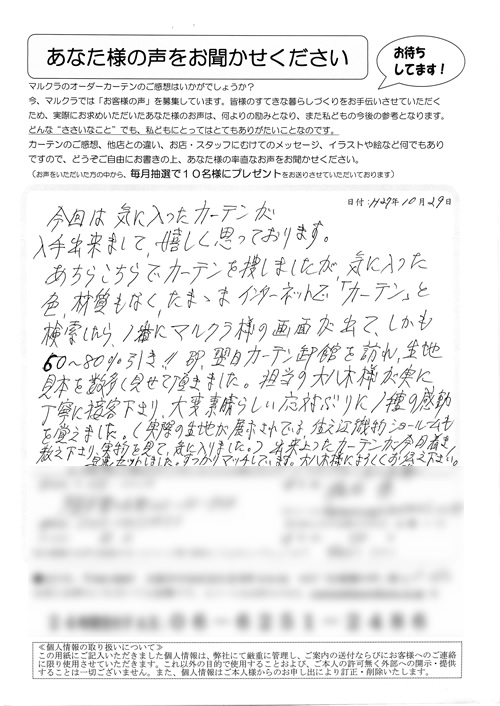 あなた様の声をお聞かせください
お待ち
してます！
マルクラのオーダーカーテンのご感想はいかがでしょうか？
今、マルクラでは「お客様の声」を募集しています。皆様のすてきな暮らしづくりをお手伝いさせていただく
ため、実際にお求めいただいたあなた様のお声は、何よりの励みとなり、また私どもの今後の参考となります。
どんな“ささいなこと”でも、私どもにとってはとてもありがたいことなのです。
カーテンのご感想、他店との違い、お店・スタッフにむけてのメッセージ、イラストや絵など何でもあり
ですので、どうぞご自由にお書きの上、あなた様の率直なお声をお聞かせください。
（お声をいただいた方の中から、毎月抽選で１０名様にプレゼントをお送りさせていただいております）
日付：H27年10月29日
今回は気に入ったカーテンが
入手出来まして、嬉しく思っております。
あちらこちらでカーテンを捜しましたが、気に入った
色、材質もなく、たまゝまインターネットで「カーテン」と
検索したら、1番にマルクラ様の画面が出て、しかも
60〜80%引き!! 即、翌日カーテン卸館を訪れ、生地
見本を数多く見せて頂きました。担当の大八木様が実に
丁寧に接客下さり、大変素晴らしい応対ぶりに1種の感動
を覚えました。（実際の生地が展示されている 住江織物ショールームも
教え下さり、実物を見て、気に入りました。）出来上ったカーテンが今日着き、
早速セットしました。すっかりマッチしています。大八木様によろしくお伝え下さい。
06-6251-2486
≪個人情報の取り扱いについて≫
この用紙にご記入いただきました個人情報は、弊社にて厳重に管理し、ご案内の送付ならびにお客様へのご連絡
に限り使用させていただきます。これ以外の目的で使用することおよび、ご本人の許可無く外部への開示・提供
することは一切ございません。また、個人情報はご本人様からのお申し出により訂正・削除いたします。